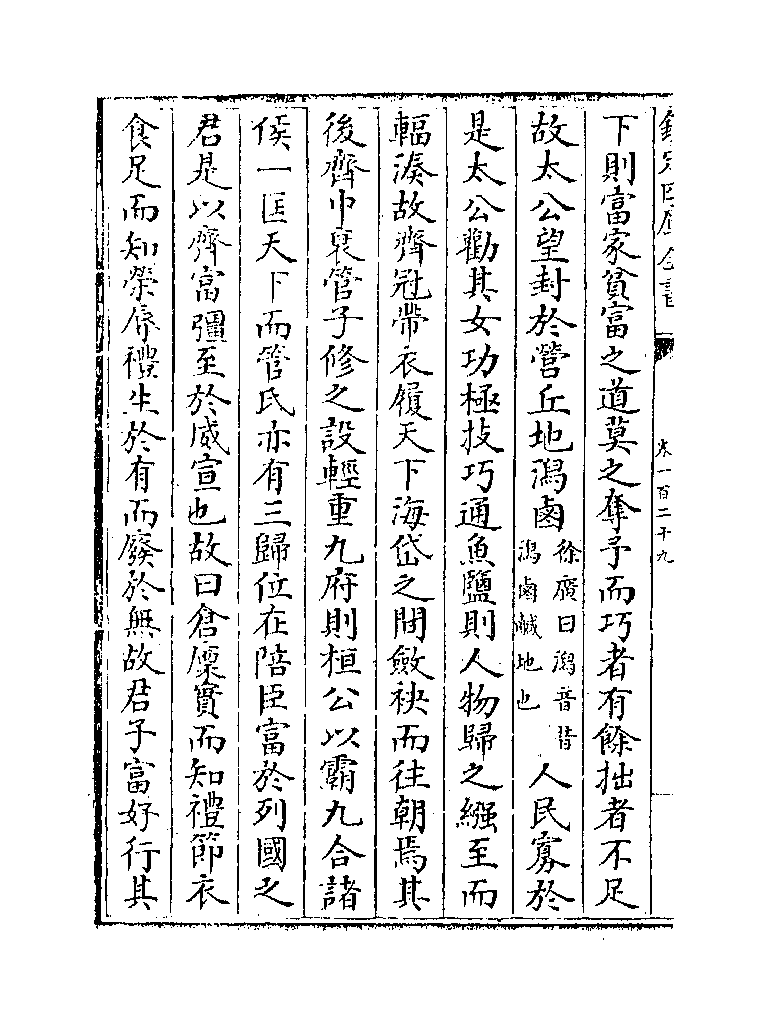 欽定四庫全書
卷一百二十九
下則富家貧富之道莫之奪予而巧者有餘拙者不足
故太公望封於營丘地潟鹵
徐廣曰潟音昔
潟鹵鹹地也
人民寡於
是太公勸其女功極技巧通魚鹽則人物歸之繦至而
輻湊故齊冠帶衣履天下海岱之間斂袂而往朝焉其
後齊中衰管子修之設輕重九府則桓公以霸九合諸
侯一匡天下而管氏亦有三歸位在陪臣富於列國之
君是以齊富彊至於威宣也故曰倉廩實而知禮節衣
食足而知榮辱禮生於有而廢於無故君子富好行其